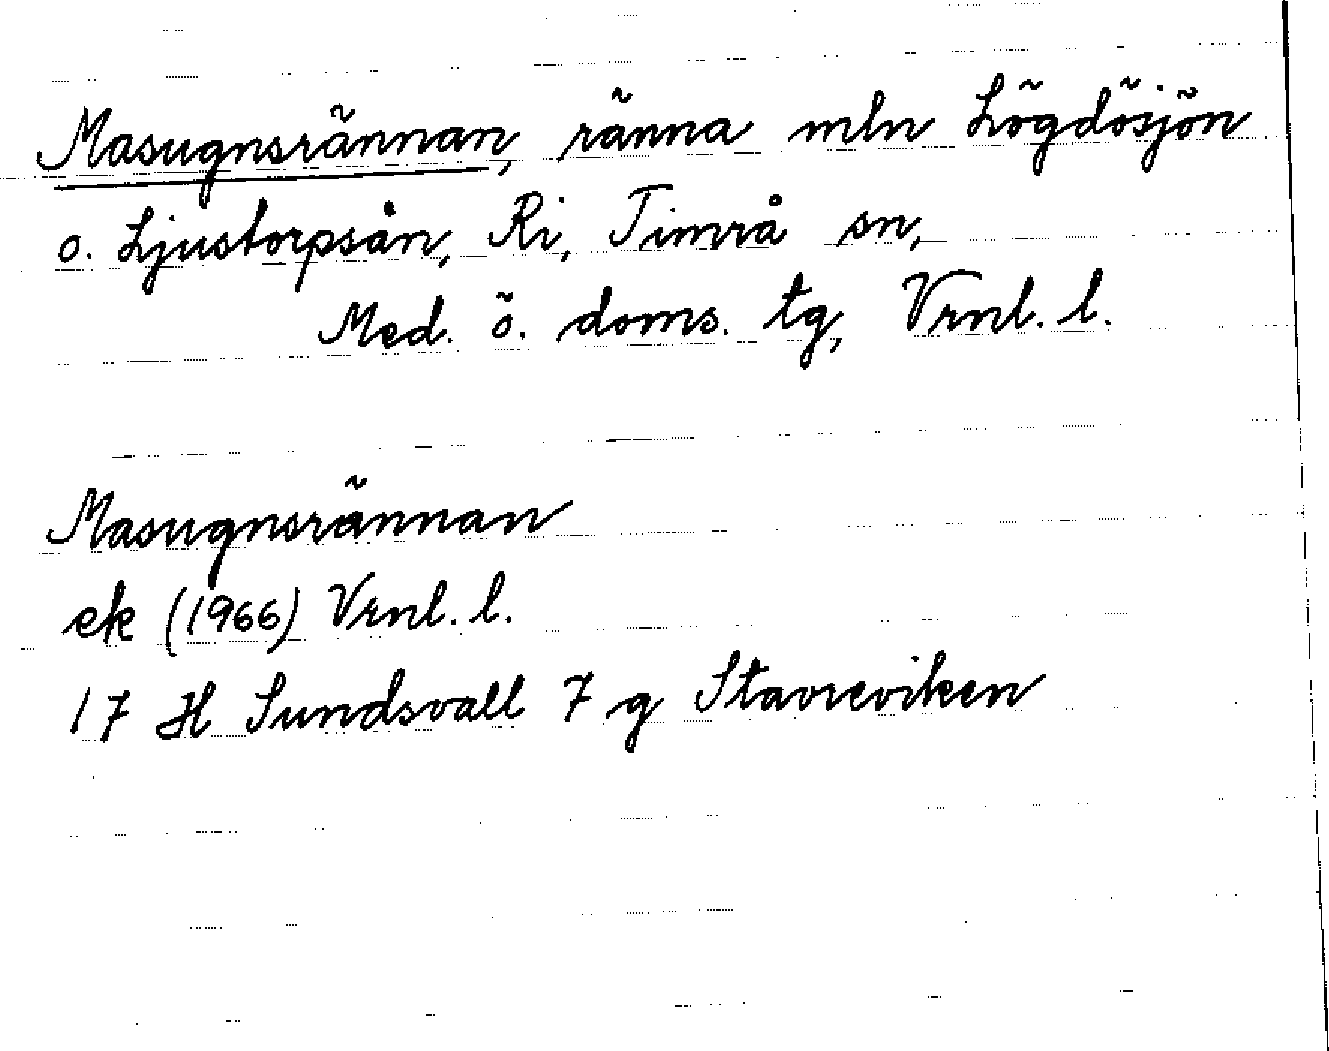 Masugnsrännan, ränna mln Lögdösjön
o. Ljustorpsån, Ri, Timrå sn,
Med. ö. doms. tg, Vrnl. l.
Masugnsrännan
ek (1966) Vrnl. l.
17 H Sundsvall 7 g Stavreviken